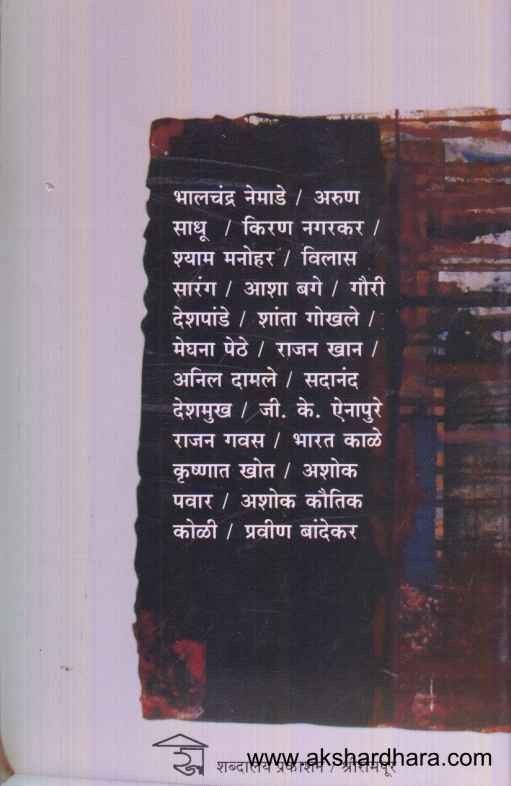 भालचंद्र नेमाडे / अरुण
साधू / किरण नगरकर /
श्याम मनोहर / विलास
सारंग / आशा बगे / गौरी
देशपांडे / शांता गोखले /
मेघना पेठे / राजन खान /
अनिल दामले / सदानंद
देशमुख / जी. के. ऐनापुरे
राजन गवस / भारत काळे
कृष्णात खोत / अशोक
पवार / अशोक कौतिक
कोळी / प्रवीण बांदेकर
शब्दालय प्रकाशन / श्रीरामपूर
www.akshardhara.com